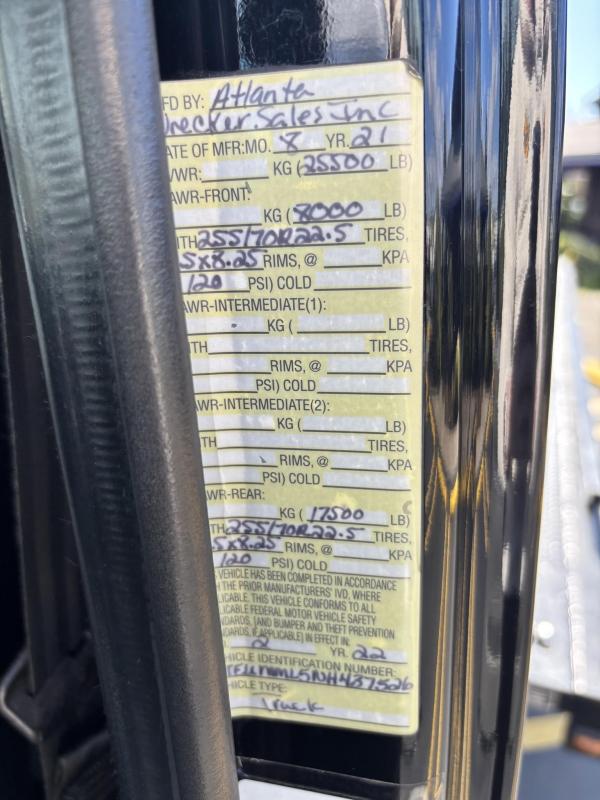 FD BY: Atlanta
Wrecker Sales Inc
ATE OF MFR:MO. 8 YR. 21
VWR: KG (25500 LB)
AWR-FRONT:
KG (8000 LB)
TH 255/70R22.5 TIRES,
5X8.25 RIMS, @ KPA
120 PSI) COLD
AWR-INTERMEDIATE(1):
KG ( LB)
TH TIRES,
RIMS, @ KPA
PSI) COLD
AWR-INTERMEDIATE(2):
KG ( LB)
TH TIRES,
RIMS, @ KPA
PSI) COLD
WR-REAR:
KG (17500 LB)
TH 255/70R22.5 TIRES,
5X8.25 RIMS, @ KPA
120 PSI) COLD
VEHICLE HAS BEEN COMPLETED IN ACCORDANCE
THE PRIOR MANUFACTURERS' IVD, WHERE
ICABLE. THIS VEHICLE CONFORMS TO ALL
ICABLE FEDERAL MOTOR VEHICLE SAFETY
NDARDS, [AND BUMPER AND THEFT PREVENTION
DARDS, IF APPLICABLE] IN EFFECT IN:
2 YR. 22
HICLE IDENTIFICATION NUMBER:
HICLE TYPE:
Truck